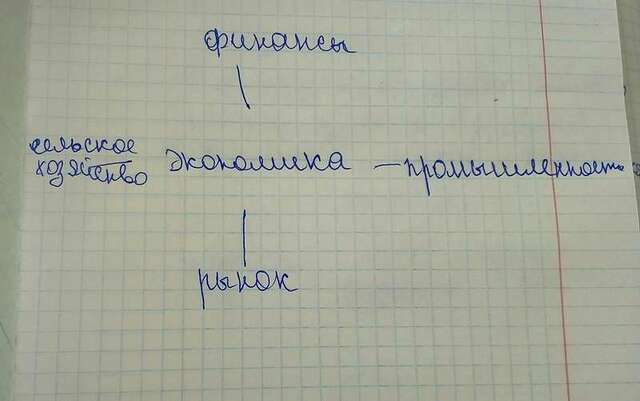 финансы
сельское
хозяйство экономика — промышленность
рынок